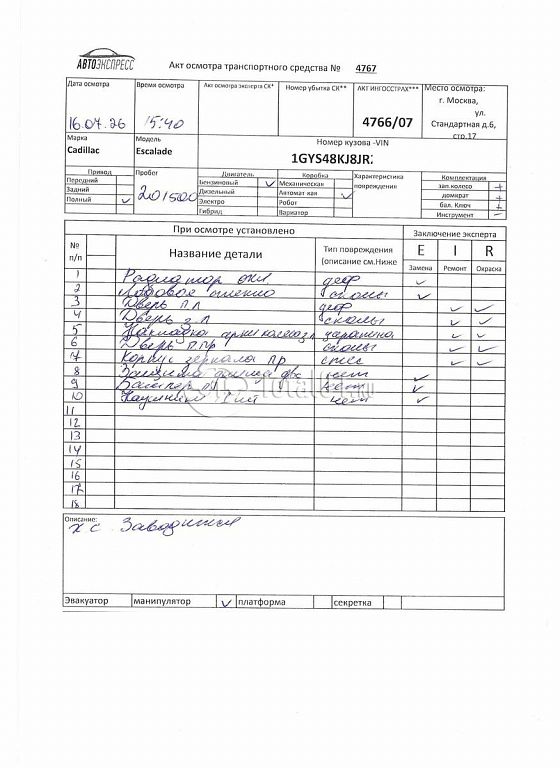 АВТОЭКСПРЕСС
Акт осмотра транспортного средства № 4767
Дата осмотра Время осмотра Акт осмотра эксперта СК* Номер убытка СК** АКТ ИНГОССТРАХ*** Место осмотра:
г. Москва,
ул.
16.07.26 15:40 4766/07 Стандартная д.6,
стр.17
Марка Модель Номер кузова -VIN
Cadillac Escalade 1GYS48KJ8JR
Привод Пробег Двигатель Коробка Характеристика Комплектация
Передний 201500 Бензиновый ✓ Механическая повреждения зап.колесо +
Задний Дизельный Автомат кая ✓ домкрат +
Полный ✓ Электро Робот бал. Ключ +
Гибрид Вариатор Инструмент –
При осмотре установлено Заключение эксперта
№ Название детали Тип повреждения E I R
п/п (описание см.Ниже Замена Ремонт Окраска
1 Радиатор охл деф ✓
2 Лобовое стекло сколы ✓
3 Дверь п л деф ✓ ✓
4 Дверь з л сколы ✓ ✓
5 Накладка арки колеса царапина ✓ ✓
6 Дверь п пр сколы ✓ ✓
7 Корпус зеркала пр ✓ ✓
8 нет ✓
9 Бампер нет ✓
10 нет ✓
11
12
13
14
15
16
17
18
Описание:
х с Заводится
Эвакуатор манипулятор ✓ платформа секретка